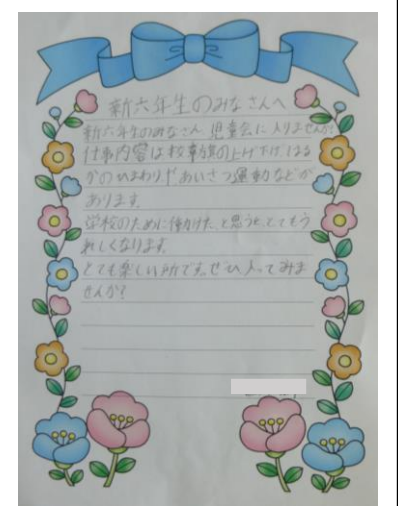 新六年生のみなさんへ
新六年生のみなさん、児童会に入りませんか?
仕事内容は校章旗の上げ下げ、はる
かのひまわりやあいさつ運動などが
あります。
学校のために働けた、と思うと、とてもう
れしくなります。
とても楽しい所です。ぜひ入ってみま
せんか?